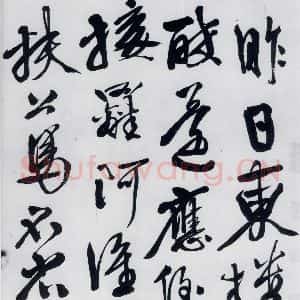 昨日東樓
醉還應倒
接䍦阿誰
扶上馬不省
Shufawang.CN